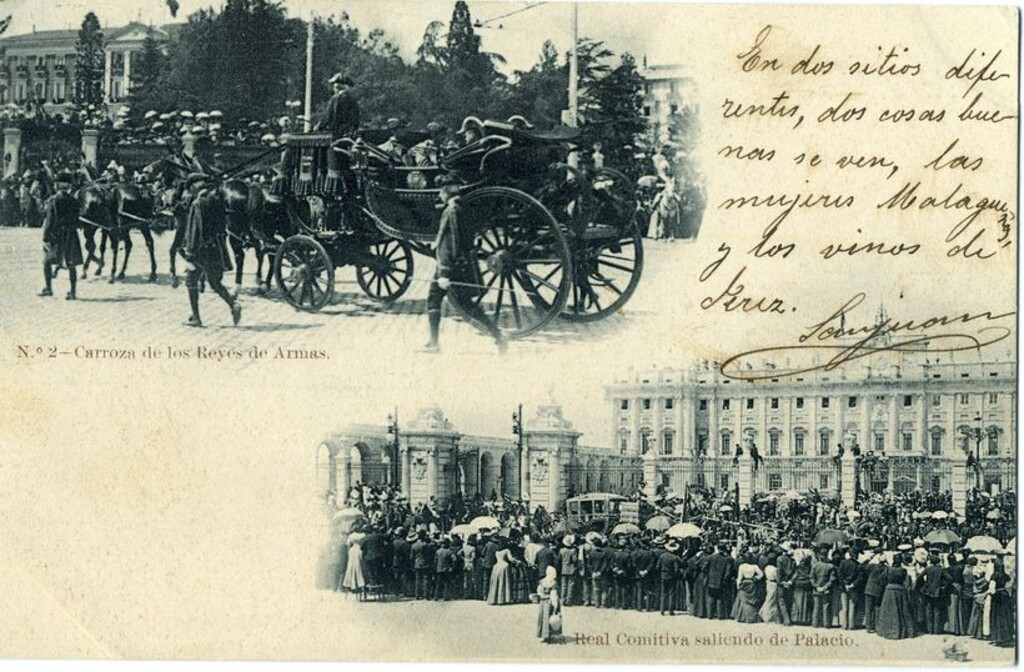 En dos sitios dife-
rentes, dos cosas bue-
nas se ven, las
mujeres Malagueñas,
y los vinos de
Jerez.
Sanjuan
N.º 2—Carroza de los Reyes de Armas.
La Real Comitiva saliendo de Palacio.